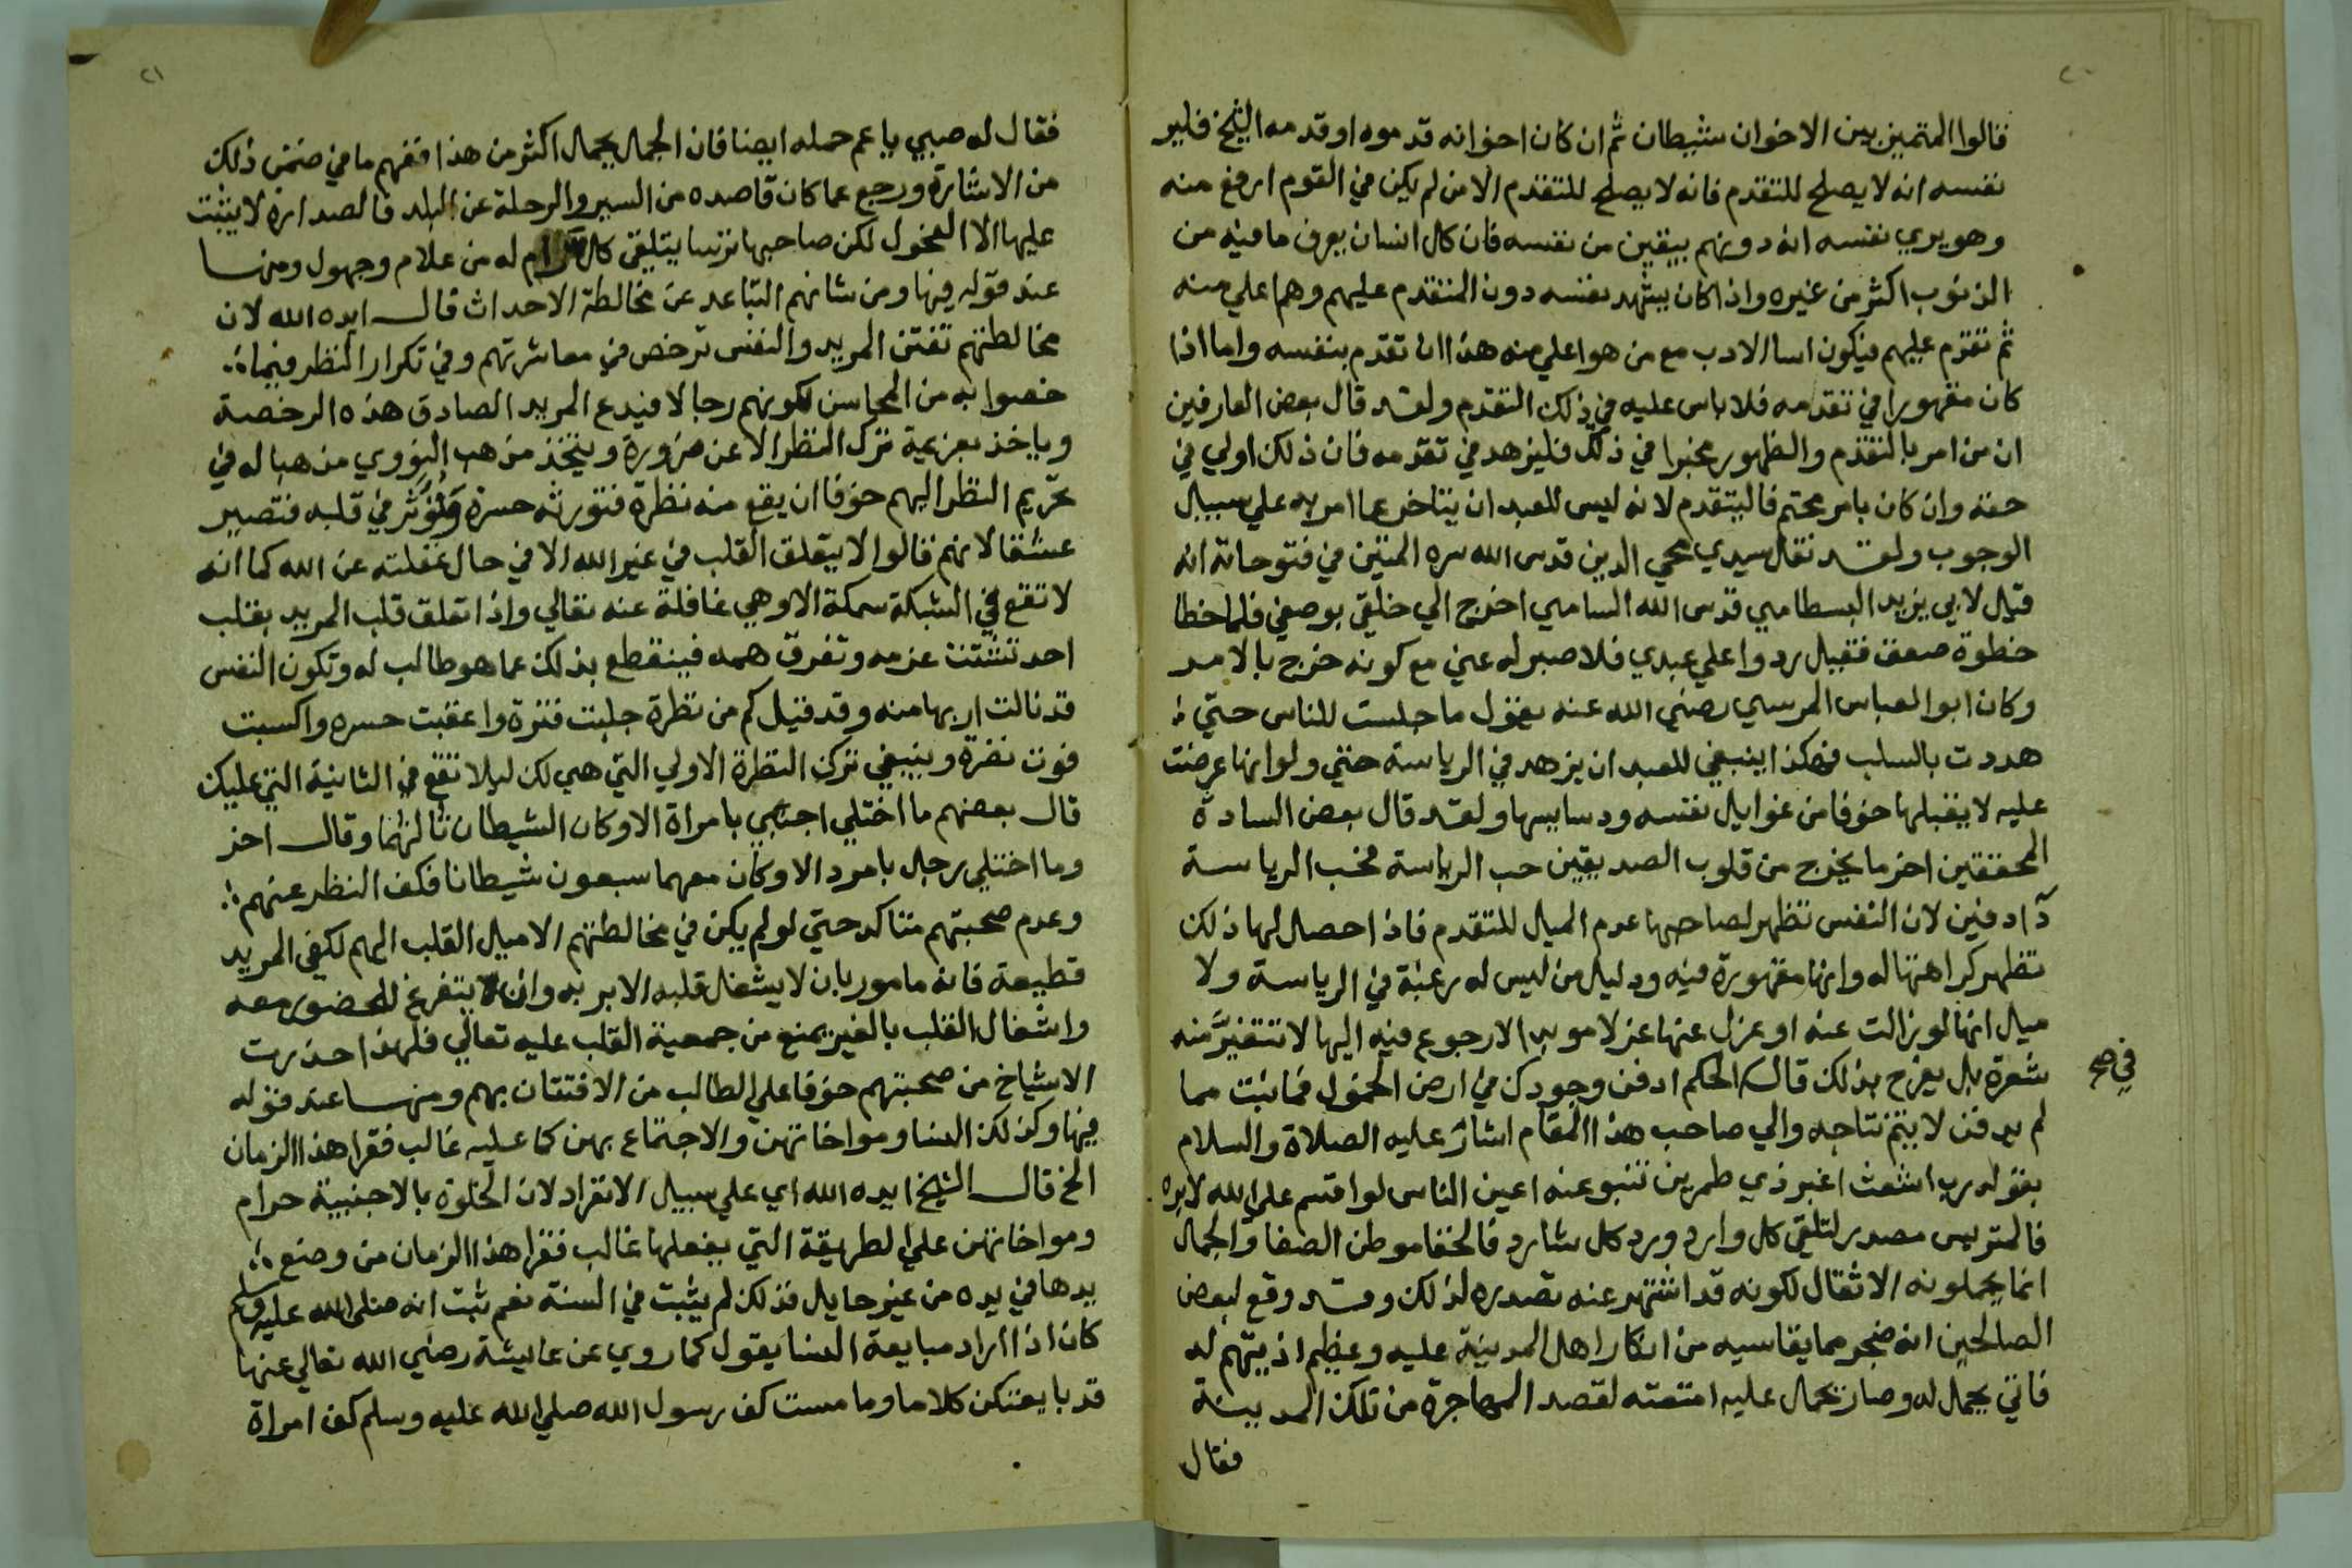 ٢٠
قالوا المتميز بين الاخوان شيطان ثم ان كان اخوانه قدموه او قدمه الشيخ فلير
نفسه انه لا يصلح للتقدم فانه لا يصلح للتقدم الا من لم يكن في القوم ارفع منه
وهو يري نفسه انه دونهم بيقين من نفسه فان كل انسان يعرف ما فيه من
الذنوب اكثر من غيره واذا كان يشهد نفسه دون المتقدم عليهم وهم اعلي منه
ثم تقدم عليهم فيكون اسا الادب مع من هو اعلي منه هذا ان تقدم بنفسه واما اذا
كان مقهورا في تقدمه فلا باس عليه في ذلك التقدم ولقد قال بعض العارفين
ان من امر بالتقدم والظهور مخيرا في ذلك فليزهد في تقدمه فان ذلك اولي في
حقه وان كان بامر محتم فاليتقدم لانه ليس للعبد ان يتاخر عما امر به علي سبيل
الوجوب ولقد نقل سيدي محي الدين قدس الله سره المتين في فتوحاته انه
قيل لابي يزيد البسطامي قدس الله السامي اخرج الي خلقي بوصفي فلما خطا
خطوة صعق فقيل ردوا علي عبدي فلا صبر له عني مع كونه خرج بالامر
وكان ابو العباس المرسي رضي الله عنه يقول ما جلست للناس حتي
هددت بالسلب فهكذا ينبغي للعبد ان يزهد في الرياسة حتي ولو انها عرضت
عليه لا يقبلها خوفا من غوايل نفسه ودسايسها ولقد قال بعض السادة
المحققين اخر ما يخرج من قلوب الصديقين حب الرياسة فحب الرياسة
داء دفين لان النفس تظهر لصاحبها عدم الميل للتقدم فاذا حصل لها ذلك
تظهر كراهتها له وانها مقهورة فيه ودليل من ليس له رغبة في الرياسة ولا
ميل انها لو زالت عنه او عزل عنها عزلا موبدا لا رجوع فيه اليها لا تتغير منه
شعرة بل يفرح بذلك قال الحكم ادفن وجودك في ارض الخمول فما نبت مما
في صح
لم يدفن لا يتم نتاجه والي صاحب هذا المقام اشار عليه الصلاة والسلام
بقوله رب اشعث اغبر ذي طمرين تنبو عنه اعين الناس لو اقسم علي الله لابره
فالمتريس مصدر لتلقي كل وارد ورد كل شارد فالخفا موطن الصفا والجمال
انما يحملونه الاثقال لكونه قد اشتهر عنه تصدره لذلك وقد وقع لبعض
الصالحين انه ضجر مما يقاسيه من انكار اهل المدينة عليه وعظيم اذيتهم له
فاتي بجمل له وصار يحمل عليه امتعته لقصد المهاجرة من تلك المدينة
فقال
٢١
فقال له صبي يا عم حمله ايضا فان الجمل يحمل اكثر من هذا ففهم ما في ضمن ذلك
من الاشارة ورجع عما كان قاصده من السير والرحلة عن البلد فالصدارة لا يثبت
عليها الا الفحول لكن صاحبها ترسا يتلقي كل رام له من علام وجهول ومنها
عند قوله فيها ومن شانهم التباعد عن مخالطة الاحداث قال ايده الله لان
مخالطتهم تفتن المريد والنفس ترخص في معاشرتهم وفي تكرار النظر فيما
خصوا به من المحاسن لكونهم رجالا فيدع المريد الصادق هذه الرخصة
وياخذ بعزيمة ترك النظر الا عن ضرورة ويتخذ مذهب النووي مذهبا له في
تحريم النظر اليهم خوفا ان يقع منه نظرة فتورثه حسرة وتؤثر في قلبه فتصير
عشقا لانهم قالوا لا يتعلق القلب في غير الله الا في حال غفلته عن الله كما انه
لا تقع في الشبكة سمكة الا وهي غافلة عنه تعالي واذا تعلق قلب المريد بقلب
احد تشتت عزمه وتفرق همه فينقطع بذلك عما هو طالب له وتكون النفس
قد نالت اربها منه وقد قيل كم من نظرة جلبت فترة واعقبت حسره واكسبت
فوت نضرة وينبغي ترك النظرة الاولي التي هي لك ليلا تقع في الثانية التي عليك
قال بعضهم ما اختلي اجنبي بامراة الا وكان الشيطان ثالثهما وقال اخر
وما اختلي رجل بامرد الا وكان معهما سبعون شيطانا فكف النظر عنهم
وعدم صحبتهم متاكد حتي لو لم يكن في مخالطتهم الا ميل القلب اليهم لكفي المريد
قطيعة فانه مامور بان لا يشغل قلبه الا بربه وان يتفرغ للحضور معه
واشغال القلب بالغير يمنع من جمعية القلب عليه تعالي فلهذا حذرت
الاشياخ من صحبتهم خوفا علي الطالب من الافتتان بهم ومنها عند قوله
فيها وكذلك النسا ومواخاتهن والاجتماع بهن كما عليه غالب فقرا هذا الزمان
الخ قال الشيخ ايده الله اي علي سبيل الانفراد لان الخلوة بالاجنبية حرام
ومواخاتهن علي الطريقة التي يفعلها غالب فقرا هذا الزمان من وضع
يدها في يده من غير حايل فذلك لم يثبت في السنة نعم ثبت انه صلي الله عليه وسلم
كان اذا اراد مبايعة النسا يقول كما روي عن عايشة رضي الله تعالي عنها
قد بايعتكن كلاما وما مست كف رسول الله صلي الله عليه وسلم كف امراة